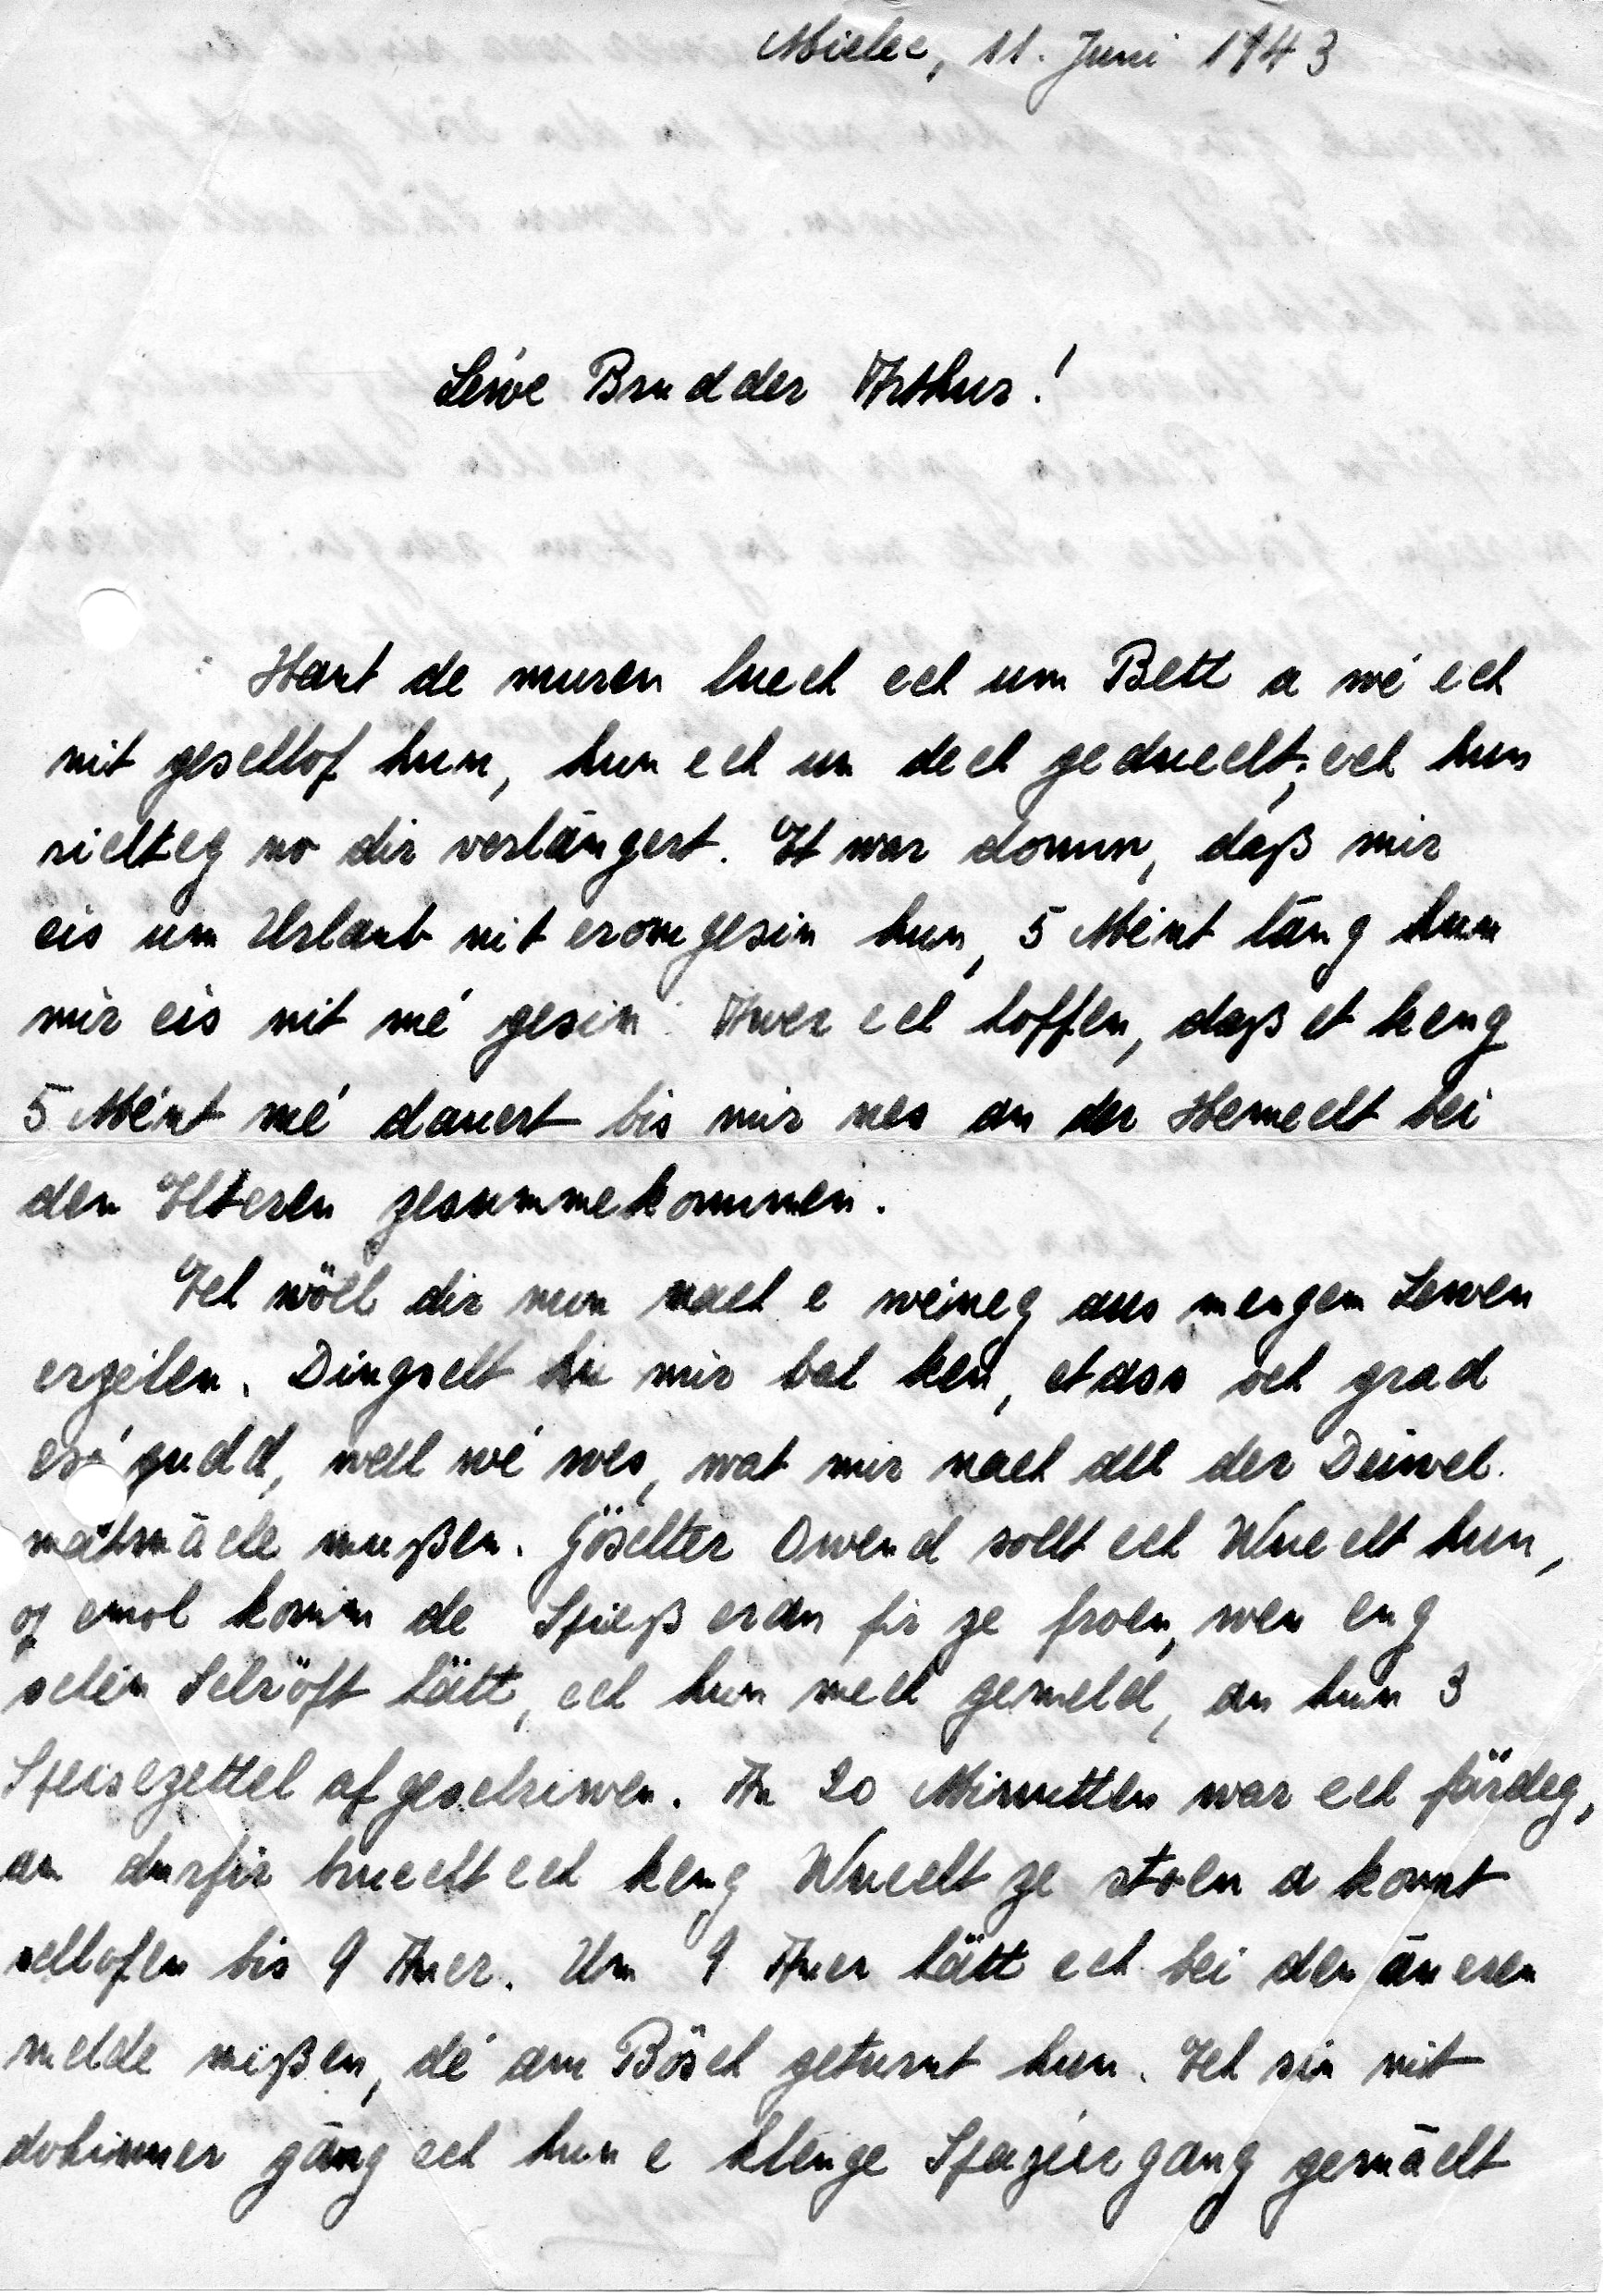 Mielec, 11. Juni 1943
Léiwe Brudder Arthur!
Haut de muren luech ech um Bett a wé ech
nit geschlof hun, hun ech un dech geduecht, ech hun
richteg no dir verlängert. Et war domm, daß mir
eis um Urlaub nit eromgesin hun, 5 Méint läng hun
mir eis nit mé gesin. Awer ech hoffen, daß et keng
5 Méint mé dauert bis mir nes an der Hemecht bei
den Elteren zesummekommen.
Ech wöll dir nun nach e wéineg aus mengem Lewen
erzéilen. Dingscht hu mir bal ken, et ass och grad
esé gudd, well wé wes, wat mir nach all der Deiwel
matmäche mußen. Göschter Owend sollt ech Wuecht hun,
op emol komm de Spieß eran fir ze froen, wen eng
schéin Schröft hätt, ech hun mech gemeld, an hun 3
Speisezettel afgeschriwen. An 20 Minutten war ech färdeg,
an durfir brucht ech keng Wuecht ze stoen a konnt
schlofen bis 9 Auer. Um 9 Auer hätt ech bei den äneren
melde mißen, dé am Bösch geturnt hun. Ech sin nit
dohinner gäng ech hun e klenge Spaziergang gemächt